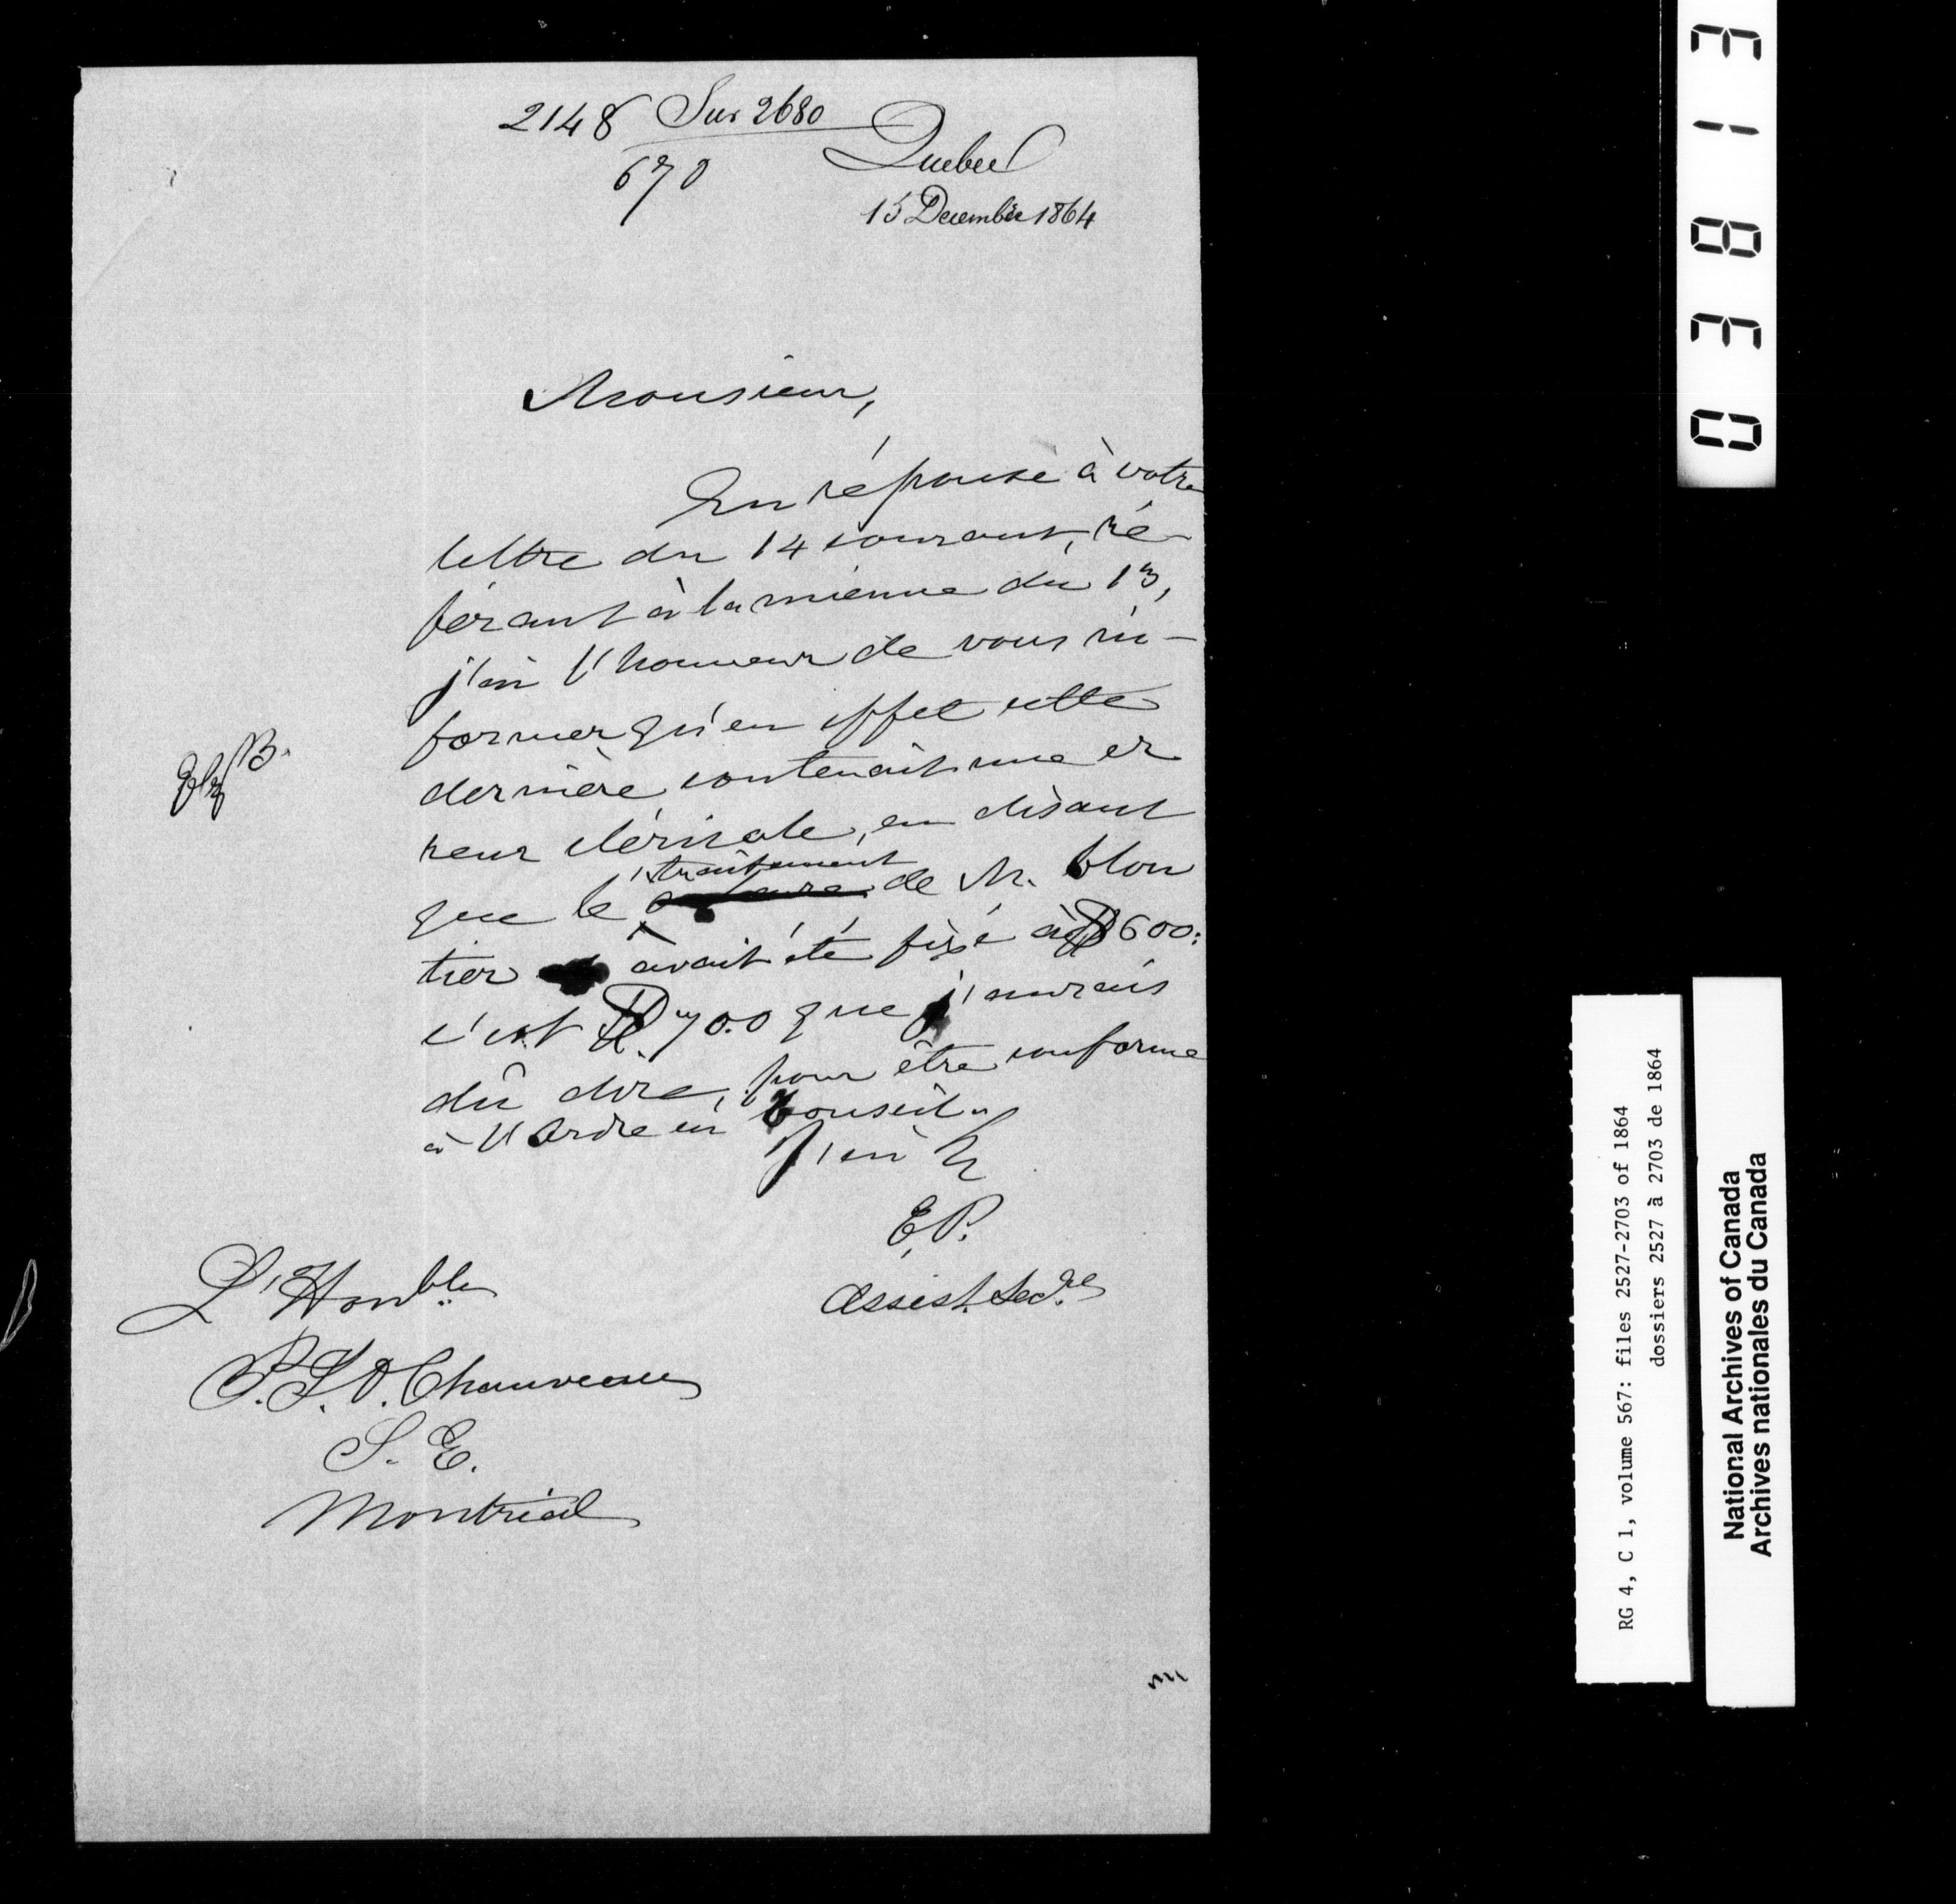 2148 Sur 2680
670
Quebec
15 Decembre 1864
Monsieur,
En réponse à votre
lettre du 14 courant, ré-
férant à la mienne du 13,
j'ai l'honneur de vous in-
former qu'en effet cette
dernière contenait une er
reur cléricale, en disant
que le traitement de M. Clou
tier avait été fixé à $600:
c'est $700 que j'aurais
dû dire, pour être conforme
à l'Ordre en Conseil.
J'ai &
E.P.
Assist. Secre
L'Honble
P.J.O. Chauveau
S. E.
Montréal
03813
RG 4, C 1, volume 567: files 2527-2703 of 1864
dossiers 2527 à 2703 de 1864
National Archives of Canada
Archives nationales du Canada